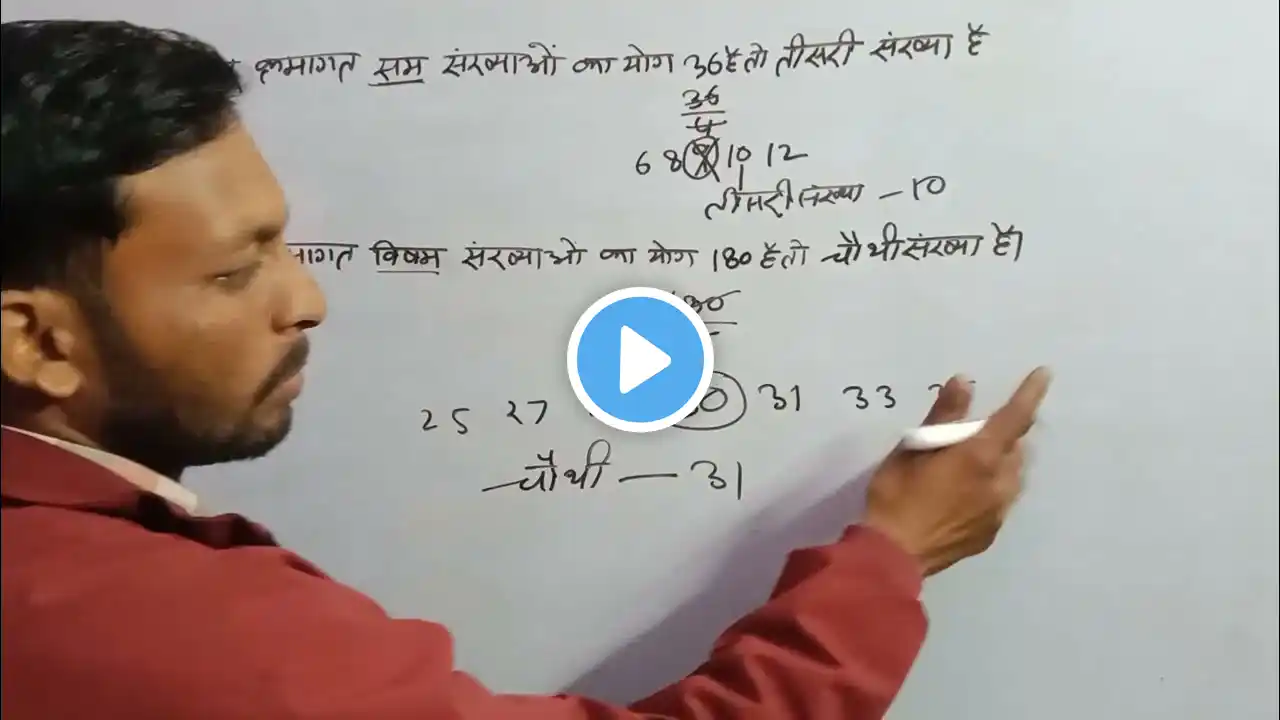 क्रमागत सम संख्याओं का योग 36 है तो तीसरी संख्या है
36
4
6 8 9 10 12
तीसरी संख्या - 10
मागत विषम संख्याओं का योग 180 है तो चौथी संख्या है।
25 27 31 33
चौथी — 31